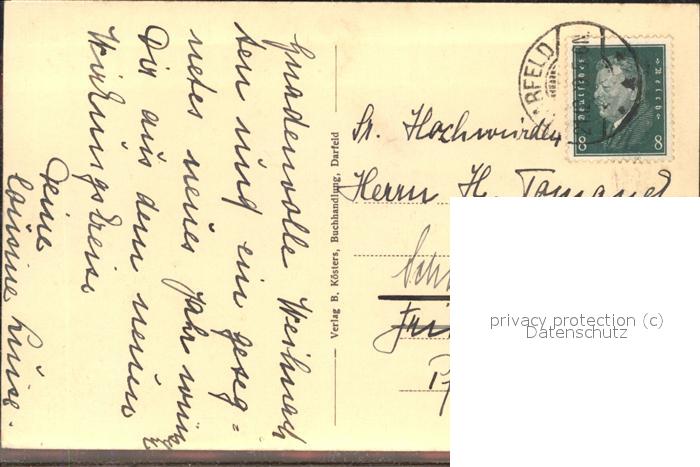 Gnadenvolle Weihnach
ten und ein geseg=
netes neues Jahr wünscht
Dir aus dem neuen
Wirkungskreise
Deine
Cousine Luise.
Verlag B. Kösters, Buchhandlung, Darfeld
RFELD
Deutsches Reich
8 8
Sr. Hochwürden
Herrn H. Tomanek
Sch
Fri
Pf
privacy protection (c)
Datenschutz